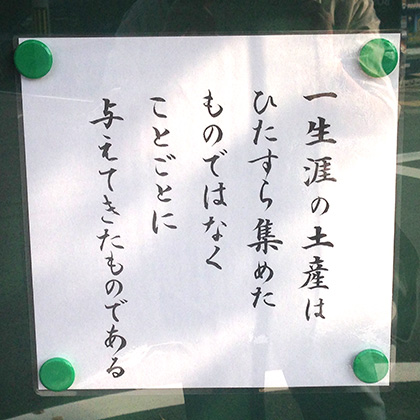 一生涯の土産は
ひたすら集めた
ものではなく
ことごとに
与えてきたものである